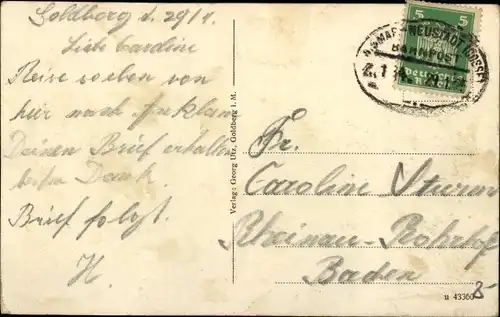 Goldberg d. 29/1.
Liebe Caroline
Reise soeben von
hier nach Anklam
Deinen Brief erhalten
besten Dank.
Brief folgt.
H.
Verlag: Georg Utz, Goldberg i. M.
WISMAR-NEUSTADT (DOSSE)
BAHNPOST
5
Deutsches Reich
Fr.
Caroline Sturm
Rheinau-Bohrhof
Baden
u 43360